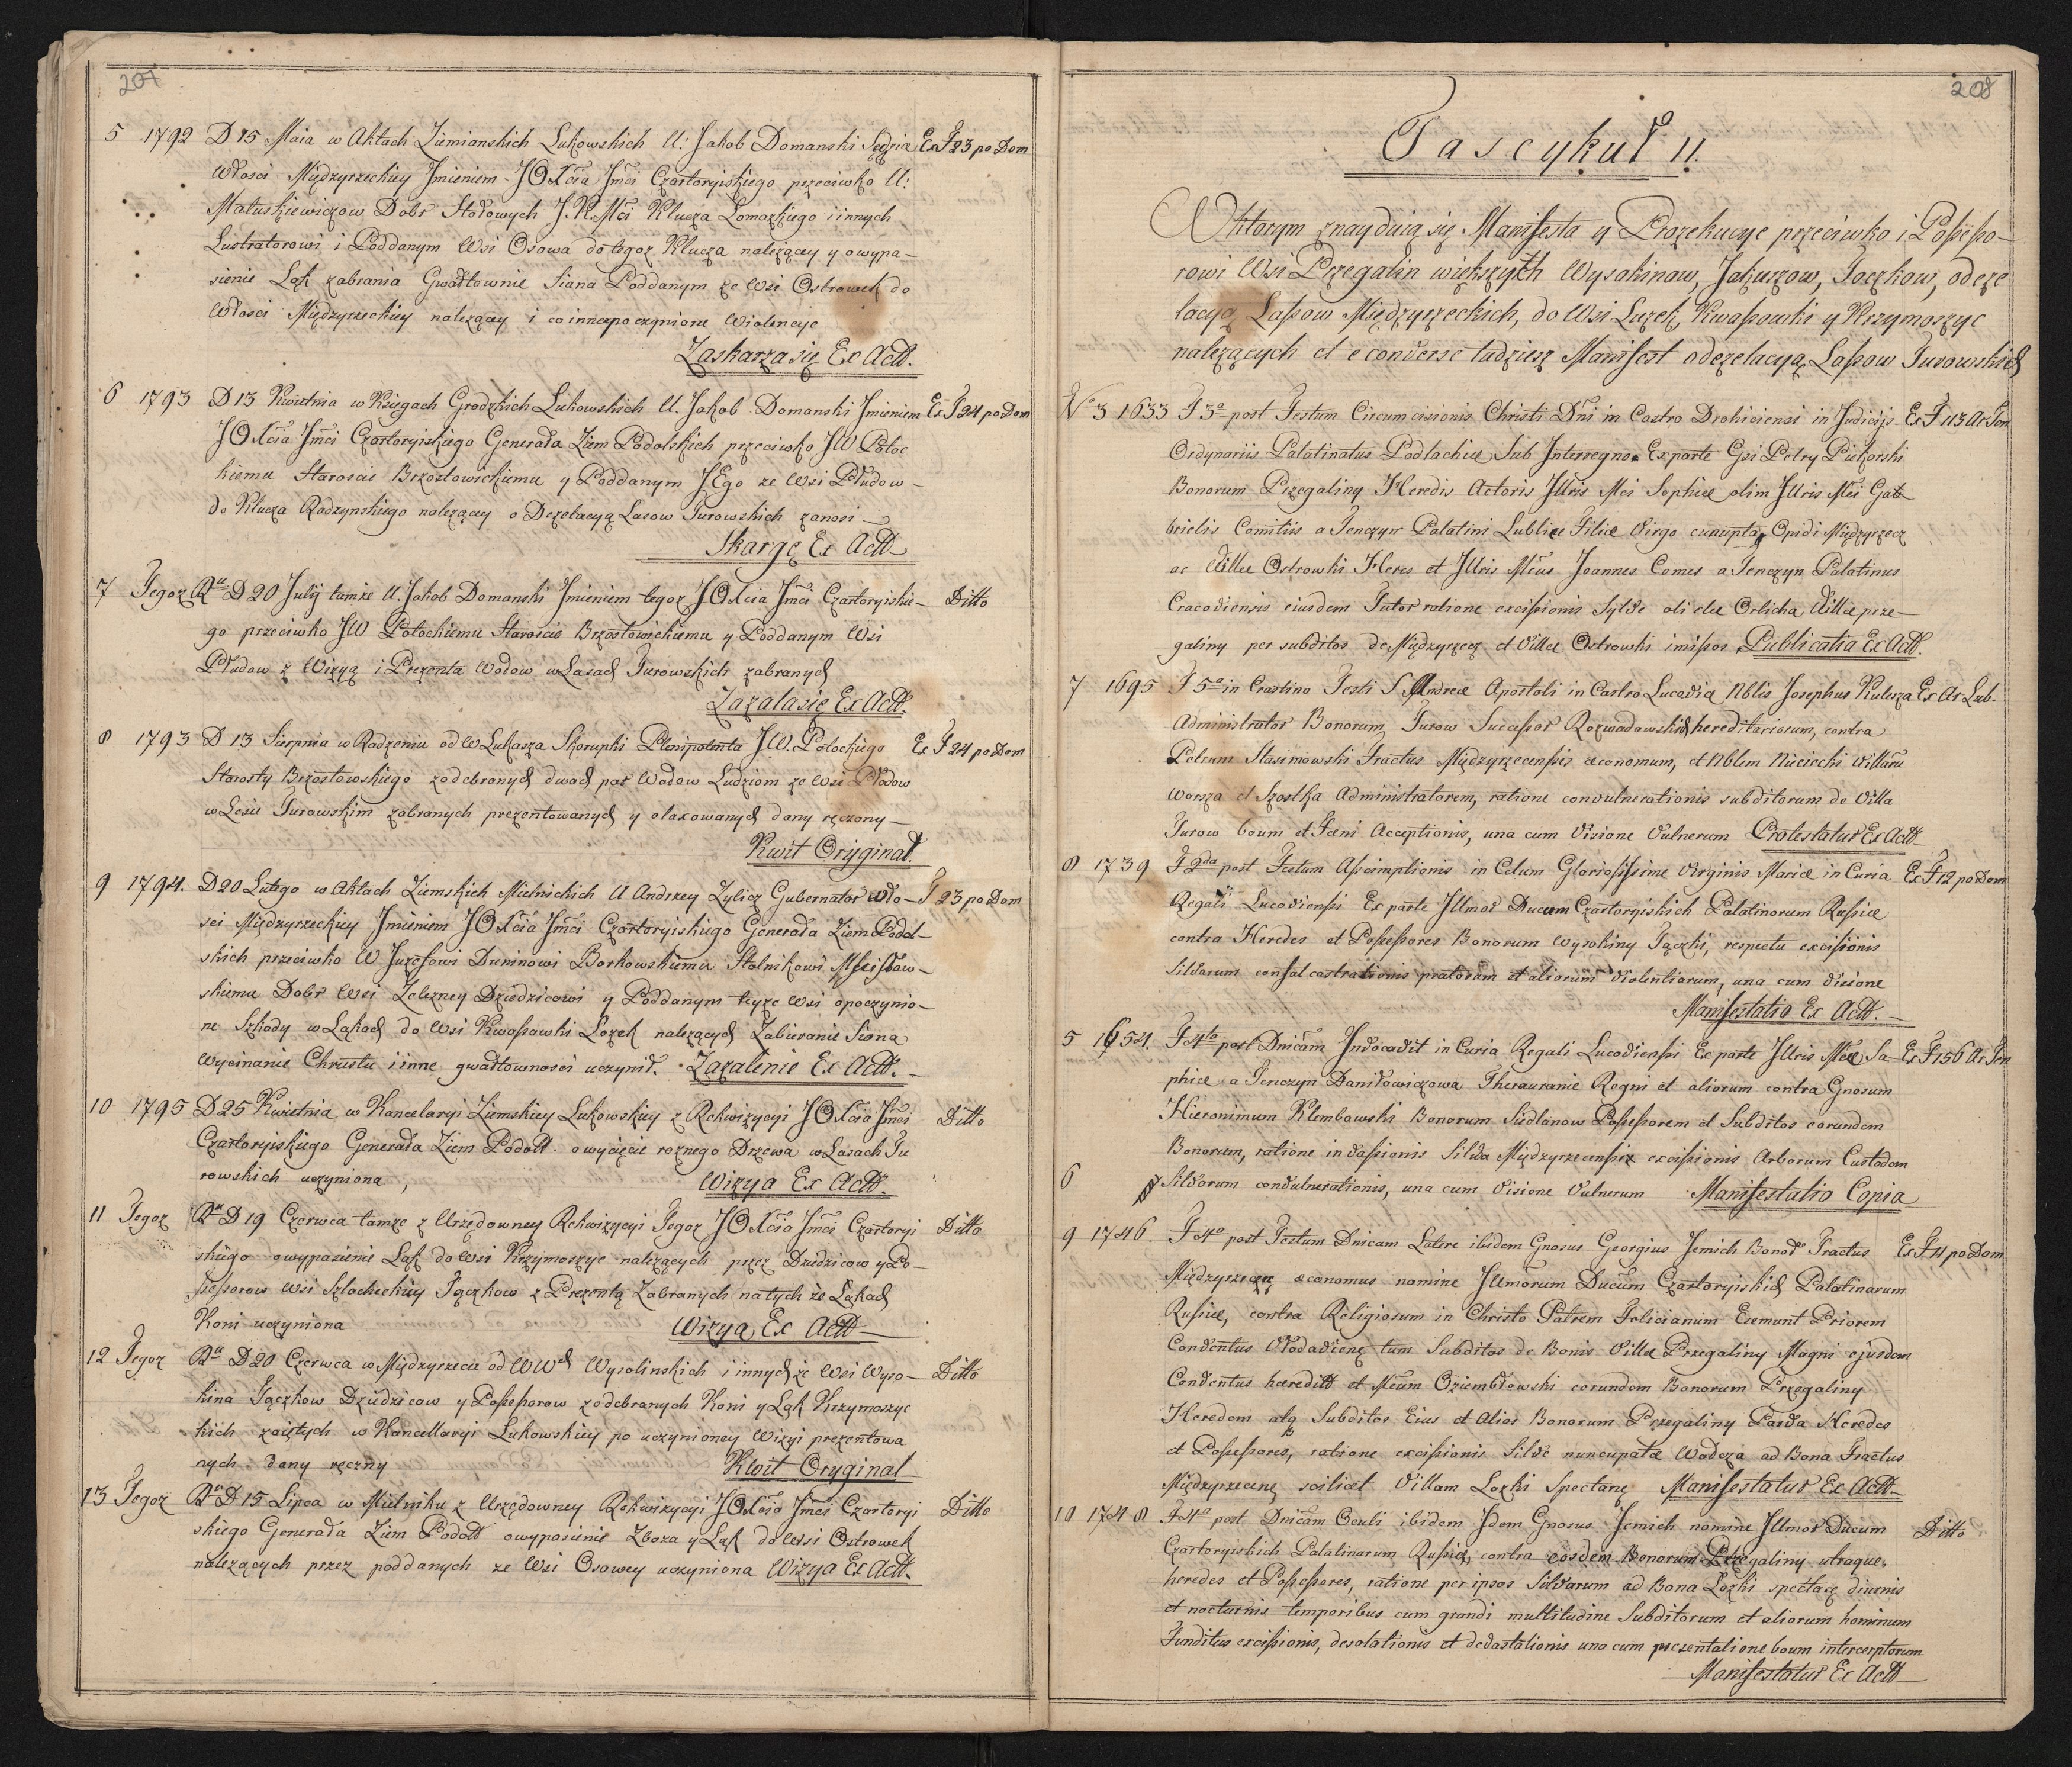 207
5 1792 D 15 Maia w Aktach Ziemianskich Lukowskich U: Jakob Domanski Sędzia Ex F 23 po Dom
Włości Międzyrzeckiey Jmieniem JOXcia Jmci Czartoryiskiego przeciwko U:
Matuskiewiczow Dobr Stołowych J.K.Mci Klucza Łomazkiego i innych
Lustratorowi i Poddanym Wsi Osowa do tegoz Klucza należący y o wypa-
sienie Łąk zabrania Gwałtownie Siana Poddanym ze Wsi Ostrowek do
Włosci Międzyrzeckiey należący i co innego poczynione Wiolencye
Zaskarza się Ex Actt.
6 1793 D 13 Kwietnia w Księgach Grodzkich Lukowskich U. Jakob Domanski Jmieniem Ex F 24 po Dom
JOXcia Jmci Czartoryiskiego Generała Ziem Podolskich przeciwko JW Potoc
kiemu Staroscie Brzostowickiemu y Poddanym JEgo ze Wsi Płudow-
do Klucza Radzynskiego należący o Dezelacyą Lasow Turowskich zanosi
Skargę Ex Actt
7 Tegoz Ru D 20 Julij tamże U. Jakob Domanski Jmieniem tegoz JOXcia Jmci Czartoryiskie- Ditto
go przeciwko JW Potockiemu Staroscie Brzostowickiemu y Poddanym Wsi
Płudow z Wizyą i Prezenta Wodow w Lasach Turowskich zabranych
Zazala się Ex Actt.
8 1793 D 13 Sierpnia w Radzeniu od W Lukasza Skorupki Plenipotenta JW. Potockiego Ex F 24 po Dom
Starosty Brzostowskiego z odebranych dwoch par Wodow Ludziom ze Wsi Płodow
w Lesie Turowskim zabranych prezentowanych y otaxowanych dany ręczony-
Kwit Orijginał.
9 1794. D 20 Lutego w Aktach Ziemskich Mielnickich U Andrzey Zylicz Gubernator Wło- F 23 po Dom
sci Międzyrzeckiey Jmieniem JOXcia Jmci Czartoryiskiego Generała Ziem Podol-
skich przeciwko W Juzefowi Duninowi Borkowskiemu Stolnikowi Mscisław-
skiemu Dobr Wsi Zelezney Dziedzicowi y Poddanym teyze Wsi o poczynio-
ne Szkody w Łąkach do Wsi Kwaßowki Lozek nalezących Zabieranie Siana
Wycinanie Chrustu i inne gwałtownosci uczynił. Zazalenie Ex Actt.
10 1795 D 25 Kwietnia w Kancelaryi Ziemskiey Lukowskiey z Rekwizycyi JOXcia Jmci Ditto
Czartoryiskiego Generała Ziem Podoll. o wycięcie roznego Drzewa w Lasach Tu
rowskich uczyniona, Wizya Ex Actt.
11 Tegoz Ru D 19 Czerwca tamze z Urzędowney Rekwizycyi Tegoz JOXcia Jmci Czartoryi Ditto
skiego o wypasienie Łąk do Wsi Krzymoszyc nalezących przez Dziedzicow y Po-
ßeßorow Wsi Szlacheckiey Tączkow z Prezentą Zabranych na tych że Łąkach
Koni uczyniona Wizya Ex Actt
12 Tegoz Ru D 20 Czerwca w Międzyrzecu od WWch Wysolinskich i innych ze Wsi Wyso- Ditto
kina Tączkow Dziedzicow y Poßeßorow z odebranych Koni y Łąk Krzymoszyc
kich zaiętych w Kancellaryi Lukowskiey po uczynioney Wizyi prezentowa
nych dany ręczny Kwit Oryginał
13 Tegoz Ru D 15 Lipca w Mielniku z Urzędowney Rekwizycyi JOXcia Jmci Czartoryi Ditto
skiego Generała Ziem Podoll o wypasienie Zboza y Łąk do Wsi Ostrowek
nalezących przez poddanych ze Wsi Osowey uczyniona Wizya Ex Actt.
208
Fascykuł 11.
W ktorym znayduią się Manifesta y Prozekucye przeciwko i Poßeßo-
rowi Wsi Przegalin większych Wysokinow, Jakuszow, Tączkow, o deze
lacyą Laßow Międzyrzeckich, do Wsi Luzek, Kwaßowki y Krzymoszyc
nalezących et e converse tudziesz Manifest o dezelacyą Laßow Turowskich
No 3 1633 F 3a post Festum Circumcisionis Christi Dni in Castro Drohiciensi in Judicijs Ex F 113 Ar Ten
Ordynariis Palatinatus Podlachiæ Sub Interregno Ex parte Gsi Petry Piekarski
Bonorum Przegaliny Heredis Actoris Jllris Mci Sophiæ olim Jllris Mci Gab-
brielis Comitiis a Tenczyn Palatini Lubliæ Filiæ Virgo Opidi Międzyrzecz
ac Villæ Ostrowki Heres et Jllris Mcus Joannes Comes a Tenczyn Palatinus
Cracoviensis eiusdem Tutor ratione excißionis Sylvæ Orlicha Villæ prze-
galiny per subditos de Międzyrzecz et Villæ Ostrowki imißos Publicatia Ex Actt.
7 1695 F 5a in Crastino Festi S Andreæ Apostoli in Castro Lucovia Nblis Josephus Kulesza Ex Ar Lub.
Administrator Bonorum Turow Sucaßor Rozwadowskich hereditariorum, contra
Petrum Stasimowski Tractus Międzyrzecenßis œconomum, et Nblem Niecicki Villaru
Worsza et Szostka Administratorem, ratione convulnerationis subditorum de Villa
Turow boum et Fœni Acceptionis, una cum Visione Vulnerum Protestatur Ex Actt
8 1739 F 2da post Festum Aßumptionis in Celum Glorioßißime Virginis Mariæ in Curia Ex F 12 po Dom
Regali Lucovienßi Ex parte Jllmor Ducum Czartoryiskich Palatinorum Rußiæ
contra Heredes et Poßeßores Bonorum Wysokiny Tączki, respectu excißionis
Silvarum confalcastrationis pratorum et aliarum Violentiarum, una cum Visione
Manifestatio Ex Actt.
5 1654. F 4ta post Dnicam Invocavit in Curia Regali Lucovienßi Ex parte Jllris Mcæ So- Ex F 156 Ar Ten
phiæ a Tenczyn Daniłowiczowa Thesauraniæ Regni et aliorum contra Gnosum
Hieronimum Klembowski Bonorum Siedlanow Poßeßorem et Subditos eorundem
Bonorum, ratione invaßionis Silva Międzyrzecensis excißionis Arborum Custodem
6 Silvarum convulnerationis, una cum Visione Vulnerum Manifestatio Copia
9 1746. F 4a post Festum Dnicam Lætere ibidem Gnosus Georgius Jemich Bonor Tractus Ex F 11 po Dom
Międzyrzecz œconomus nomine Jllmorum Ducum Czartoryiskich Palatinorum
Rußiæ, contra Religiosum in Christo Patrem Felicianum Priorem
Conventus Włodaviens tum Subditos de Bonis Villæ Przegaliny Magni ejusdem
Conventus haereditt et Mcum Oziembłowski eorundem Bonorum Przegaliny
Heredem atq Subditos Eius et Alios Bonorum Przegaliny Parva Heredes
et Poßeßores, ratione excißionis Silvæ nuncupatæ Wodcza ad Bona Tractus
Międzyrzecens scilicet Villam Lozki Spectans Manifestatur Ex Actt
10 1748. F 4a post Dnicam Oculi ibidem Jdem Gnosus Jemich nomine Jllmor Ducum Ditto
Czartoryiskich Palatinorum Rußiæ, contra eosdem Bonorum Przegaliny utraque
heredes et Poßeßores, ratione per ipsos Silvarum ad Bona Lozki spectac diurnis
et nocturnis temporibus cum grandi multitudine Subditorum et aliorum hominum
Funditus excißionis, desolationis et devastationis una cum prezentatione boum interceptorum
Manifestatur Ex Actt